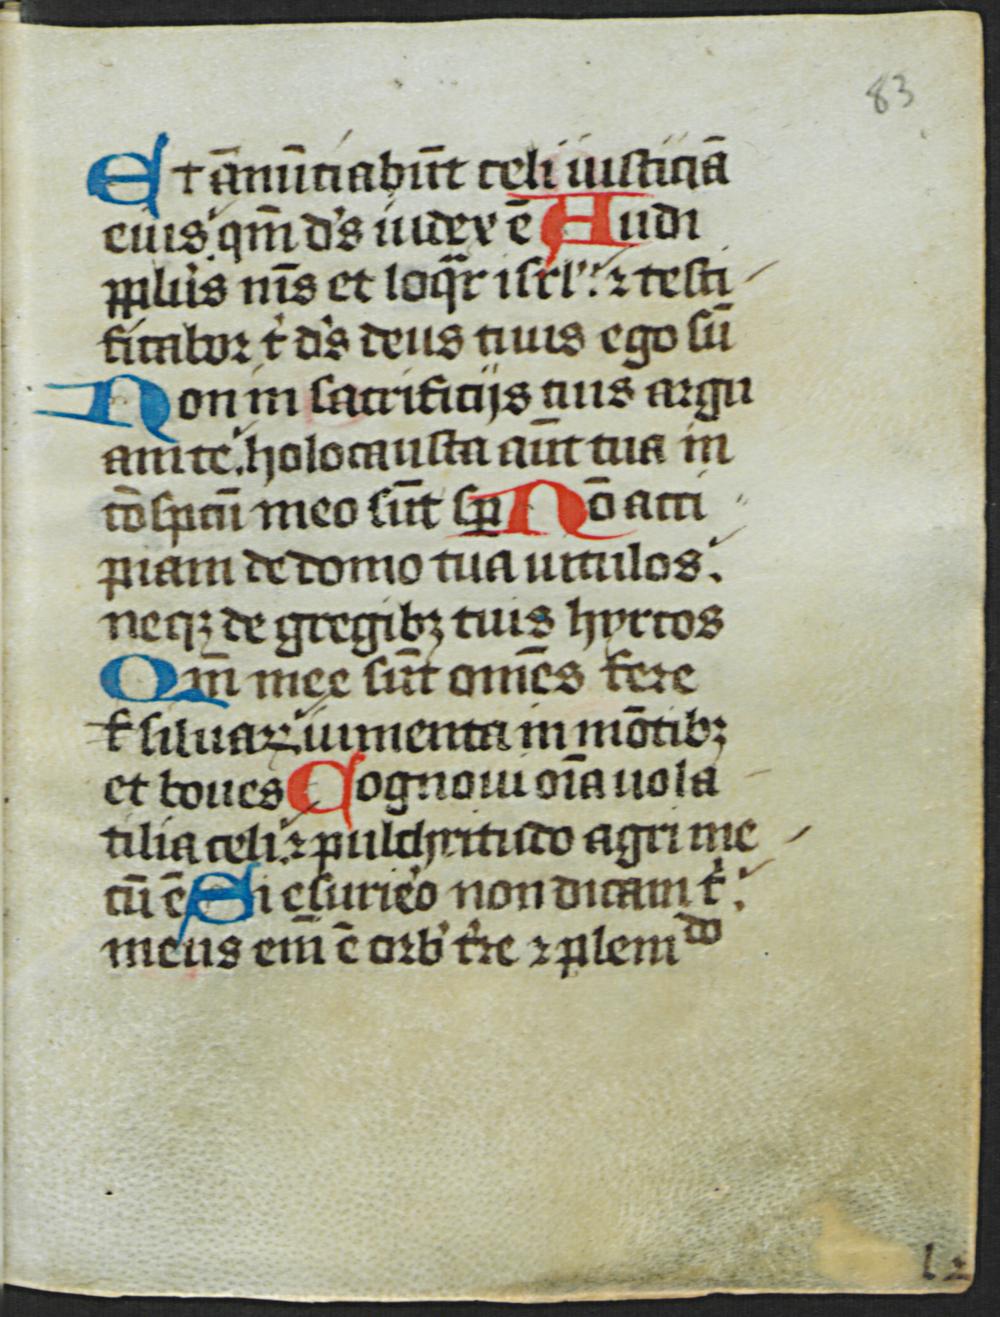 83
Et ānūciabūt celi iusticiā
eius qm̄ ds iudex ē Audi
pplus ms̄ et loqr isrl et testi
ficabor t ds deus tuus ego sū
Non in sacrificijs tuis argu
am te. holocausta aūt tua in
cōspcū meo sūt sp Nō acci
piam de domo tua uitulos.
neqꝫ de gregibꝫ tuis hyrcos
Qm̄ mee sūt om̄es fere
siluaꝝ iumenta in mōtibꝫ
et boues Cognoui oīa uola
tilia celi. ⁊ pulchritudo agri me
cū ē Si esuriero non dicam t.
meus em̄ ē orb tre ⁊ plenıdo